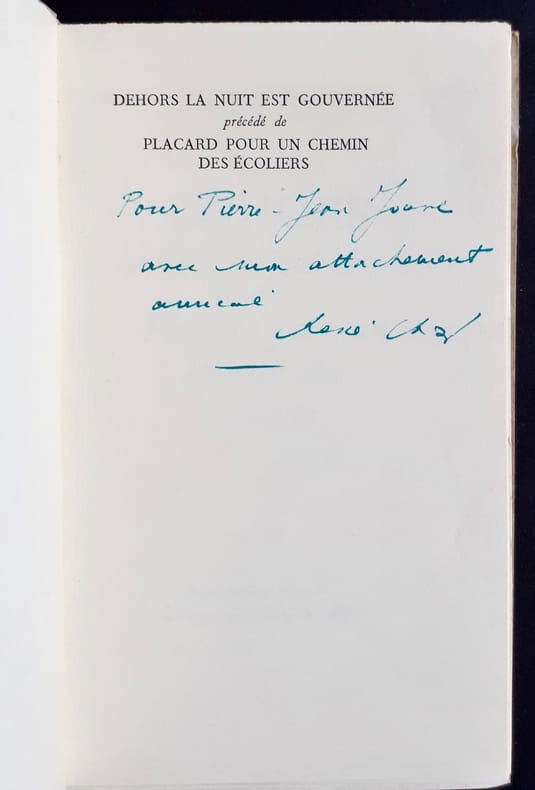 DEHORS LA NUIT EST GOUVERNÉE
précédé de
PLACARD POUR UN CHEMIN
DES ÉCOLIERS
Pour Pierre-Jean Jouve
avec mon attachement
amical
René Char